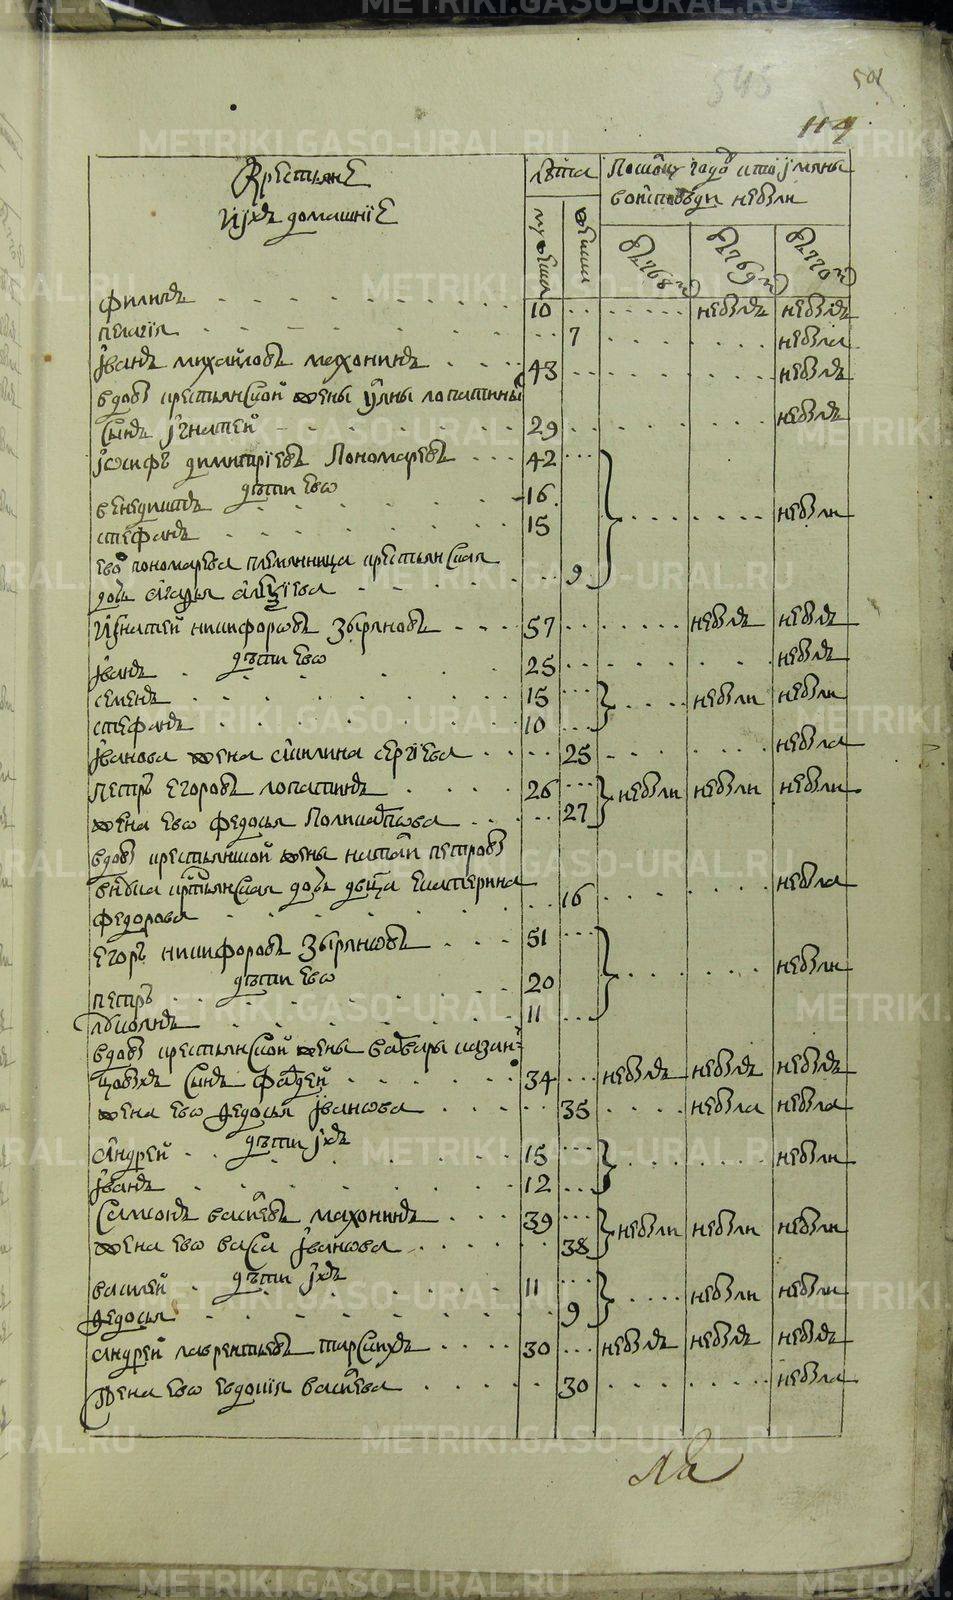 545
501
114
Крестьяне
И ихъ домашніе
Лѣта
мужеска
женска
в 1768 м
в 1769 м
в 1770 м
небыли
филипъ 10 небылъ небылъ
пелагія 7 небыла
Иванъ михайловъ махонинъ 43 небылъ
вдовы крестьянской жены улны лопатины
сынъ Игнатей 29 небылъ
Иосифъ димитріевъ Пономаревъ 42
дѣти ево
венедиктъ 16 небыли
стефанъ 15
ево пономарева племянница крестьянская
дочь агафья алеѯіева 9
Игнатей никифоровъ Зырановъ 57 небылъ небылъ
дѣти ево
Иванъ 25 небылъ
семенъ 15 небыли небыли
стефанъ 10
Иванова жена акилина сергіева 25 небыла
Петръ егоровъ лопатинъ 26 небыли небыли небыли
жена ево федосья Поликарпова 27
вдовы крестьянской жены наталіи петровы
крестьянская дочь дѣвица екатерина
федорова 16 небыла
Егоръ никифоровъ Зыряновъ 51
дѣти ево
петръ 20 небыли
11
вдовы крестьянской жены варвары казан
цовыхъ сынъ Фадей 34 небылъ небылъ небылъ
жена ево федосья Іванова 35 небыла небыла
дѣти ихъ
Андрей 15 небыли
Иванъ 12
Самсонъ васильевъ махонинъ 39 небыли небыли небыли
жена ево васса Іванова 38
дѣти ихъ
василей 11 небыли небыли
федосья 9
андрей лаврентьевъ тарскихъ 30 небылъ небылъ небылъ
Жена ево евдокія васильева 30 небыла
METRIKI.GASO-URAL.RU